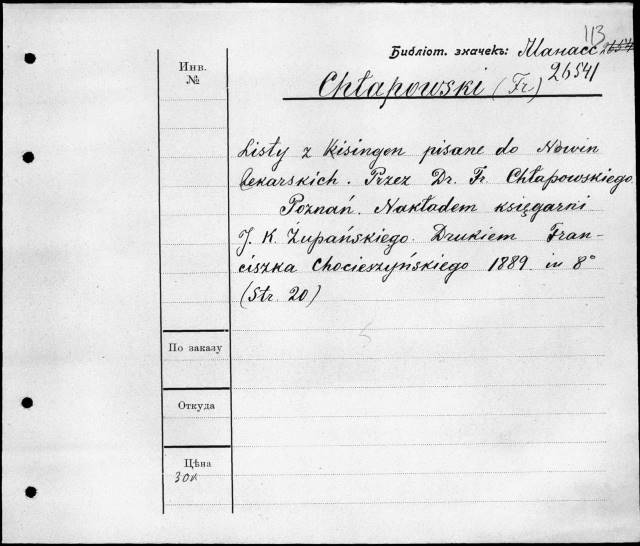 113
Библіот. значекъ: Манасс 26541
26541
Chłapowski (Fr.)
Инв.
№
Listy z Kisingen pisane do Nowin
Lekarskich. Przez Dr. Fr. Chłapowskiego
Poznań. Nakładem księgarni
J. K. Żupańskiego. Drukiem Fran-
ciszka Chocieszyńskiego 1889 in 8°
(Str. 20)
По заказу
Откуда
Цѣна